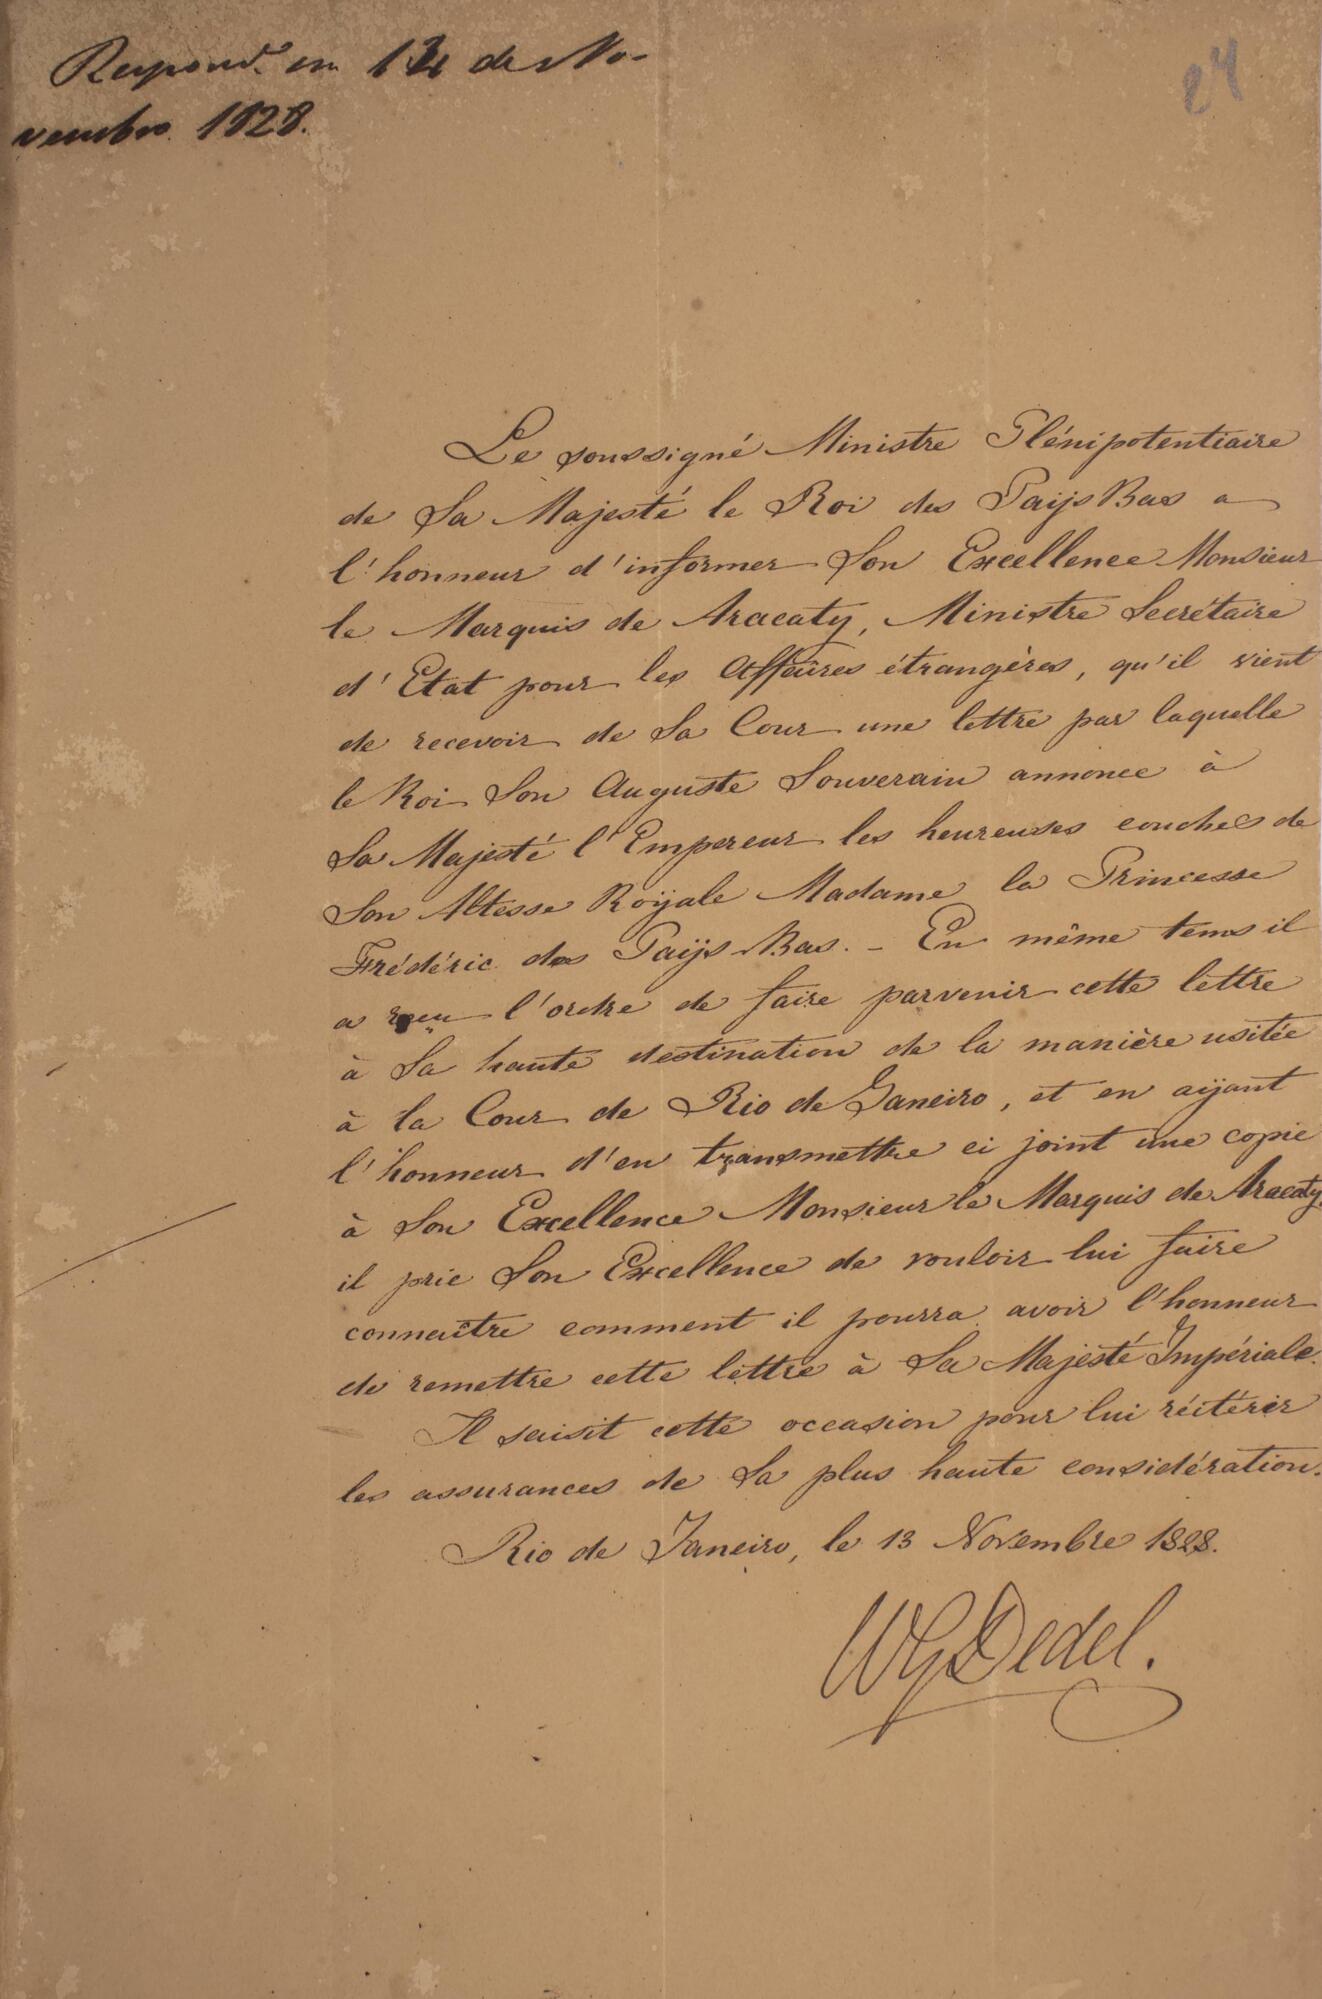 Respond.e em 14 de No-
vembro 1828.
24
Le soussigné Ministre Plénipotentiaire
de Sa Majesté le Roi des Paÿs Bas a
l'honneur d'informer Son Excellence Monsieur
le Marquis de Aracaty, Ministre Secrétaire
d'Etat pour les Affaires étrangères, qu'il vient
de recevoir de Sa Cour une lettre par laquelle
le Roi Son Auguste Souverain annonce à
Sa Majesté l'Empereur les heureuses couches de
Son Altesse Roÿale Madame la Princesse
Frédéric des Paÿs-Bas. - En même tems il
a reçu l'ordre de faire parvenir cette lettre
à Sa haute destination de la manière usitée
à la Cour de Rio de Janeiro, et en aÿant
l'honneur d'en transmettre ci joint une copie
à Son Excellence Monsieur le Marquis de Aracaty,
il prie Son Excellence de vouloir lui faire
connaître comment il pourra avoir l'honneur
de remettre cette lettre à Sa Majesté Impériale.
Il saisit cette occasion pour lui réitérer
les assurances de Sa plus haute considération.
Rio de Janeiro, le 13 Novembre 1828.
WG Dedel.